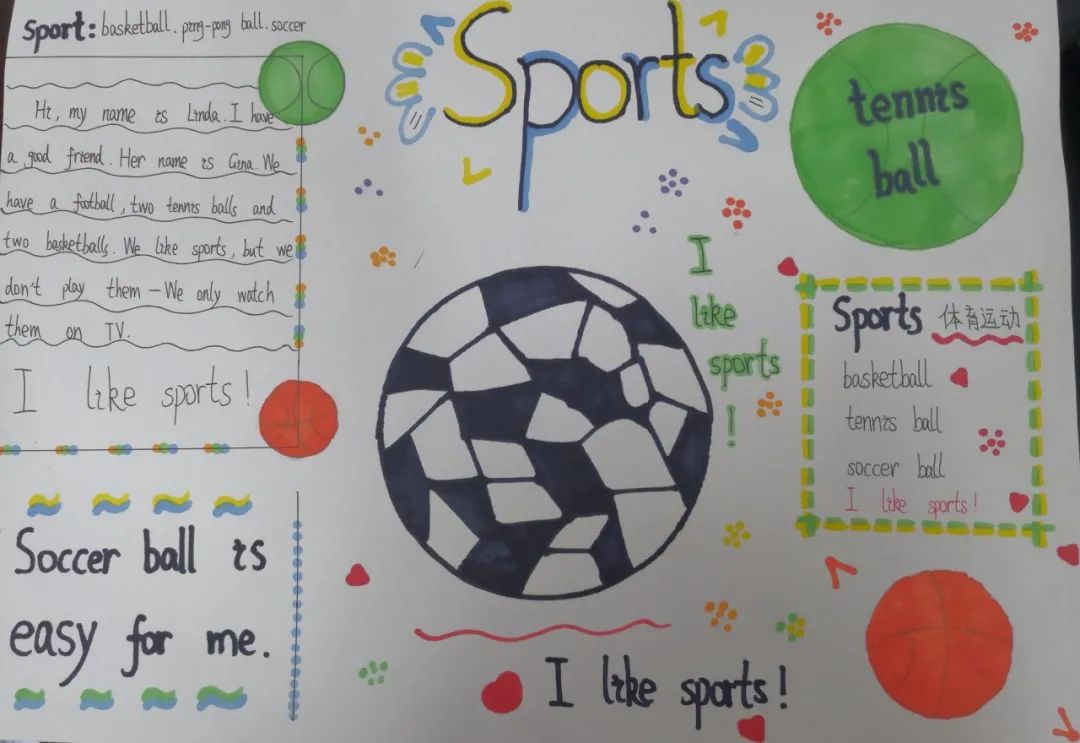 Sport: basketball. ping-pong ball. soccer
Hi, my name is Linda. I have
a good friend. Her name is Gina. We
have a football, two tennis balls and
two basketballs. We like sports, but we
don't play them — We only watch
them on TV.
I like sports!
Soccer ball is
easy for me.
Sports
I
like
sports
!
I like sports!
tennis
ball
Sports 体育运动
basketball
tennis ball
soccer ball
I like sports!